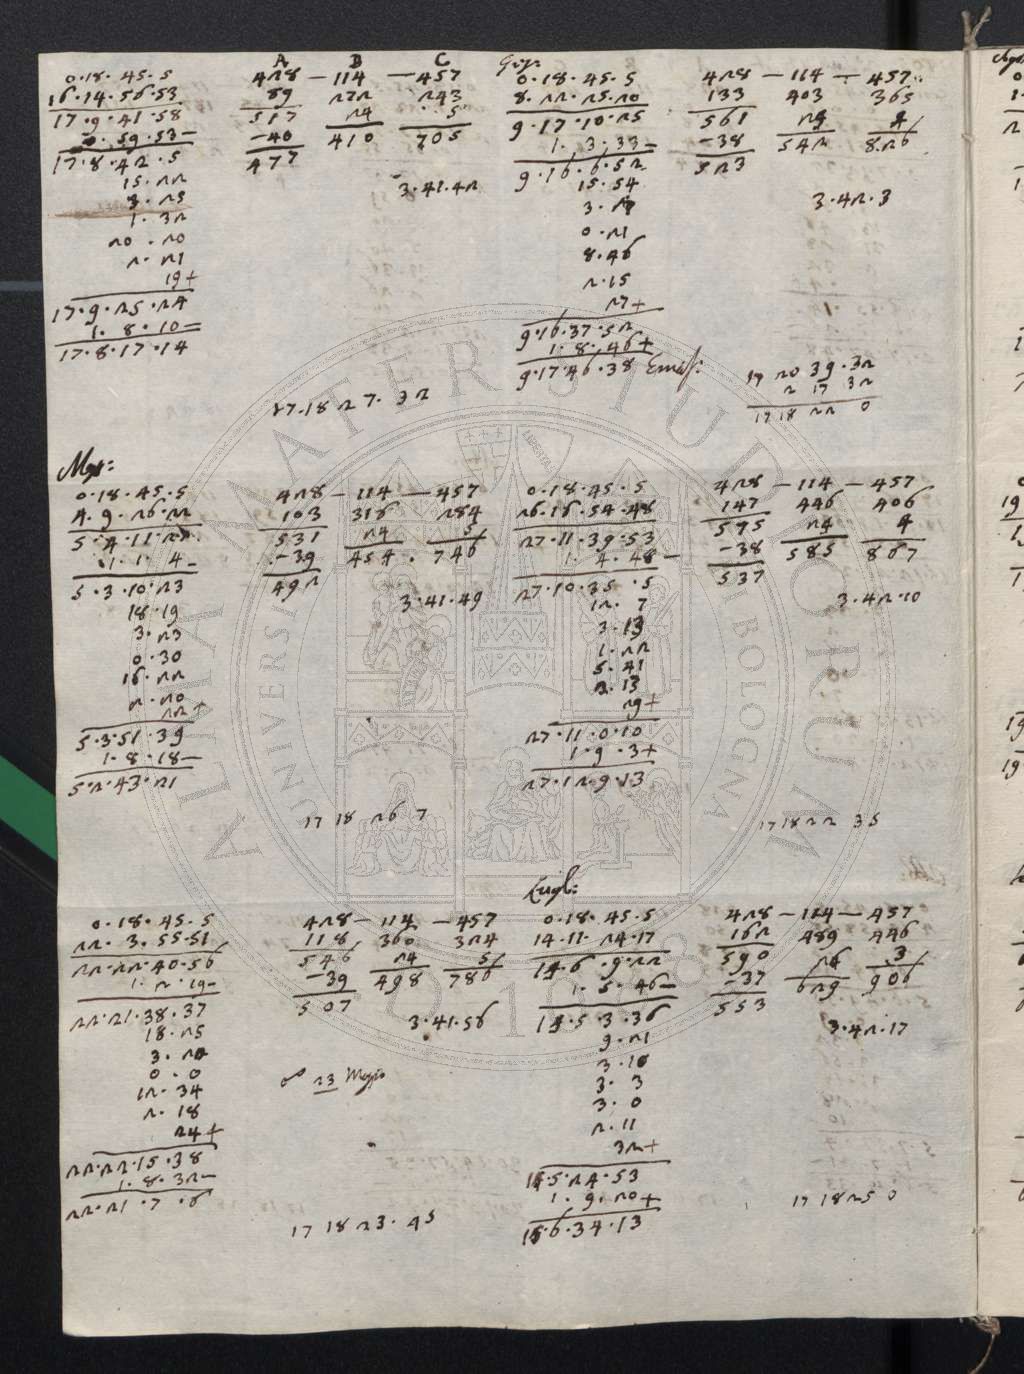 A B C
0.18.45.5
16.14.56.53
17.9.41.58
0.59.53-
17.8.42.5
15.22
3.25
1.32
20.20
2.21
19+
17.9.25.24
1.8.10-
17.8.17.14
428-114-457
89 272 243
517 24 5
-40 410 705
477
3.41.42
17.18 27.32
0.18.45.5
8.22.25.20
9.17.10.25
1.3.33-
9.16.6.52
15.54
3.28
0.21
8.46
2.15
27+
9.16.37.52
1.8.46+
9.17.46.38
428-114-457
133 403 365
561 24 4
-38 542 826
523
3.42.3
17 20 39.32
2 17 32
17 18 22 0
0.18.45.5
4.9.26.22
5.4.11.27
1.1.4-
5.3.10.23
18.19
3.23
0.30
16.22
2.20
22+
5.3.51.39
1.8.18-
5.2.43.21
428-114-457
103 316 284
531 24 5
-39 454 746
492
3.41.49
17 18 26 7
0.18.45.5
26.16.54.48
27.11.39.53
1.4.48-
27.10.35.5
12.7
3.13
1.22
5.41
2.13
29+
27.11.0.10
1.9.3+
27.12.9.13
428-114-457
147 446 406
595 24 4
-38 585 867
537
3.42.10
17 18 22 35
0.18.45.5
22.3.55.51
22.22.40.56
1.2.19-
22.21.38.37
18.25
3.20
0.0
12.34
2.18
24+
22.22.15.38
1.8.32-
22.21.7.6
428-114-457
118 360 324
546 24 5
-39 498 786
507
3.41.56
23
17 18 23.45
0.18.45.5
14.11.24.17
15.6.9.22
1.5.46-
15.5.3.36
9.21
3.10
3.3
3.0
2.11
32+
15.5.24.53
1.9.20+
15.6.34.13
428-114-457
162 489 446
590 26 3
-37 629 906
553
3.42.17
17 18 25 0
ALMA MATER STUDIORUM